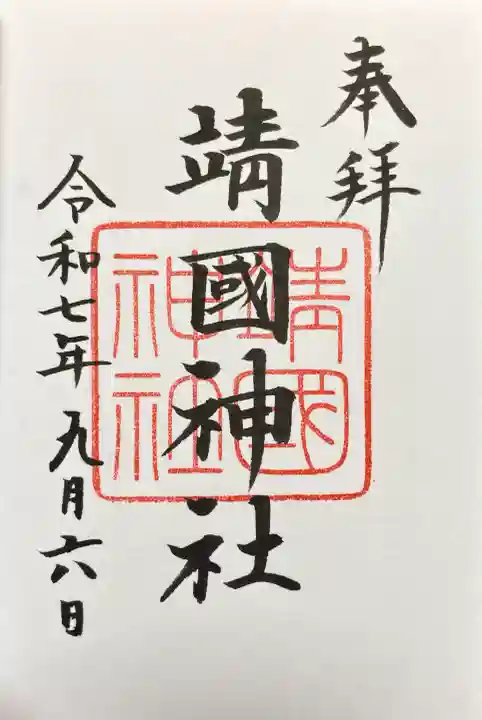 奉拝
靖國神社
靖國神社
令和七年九月六日